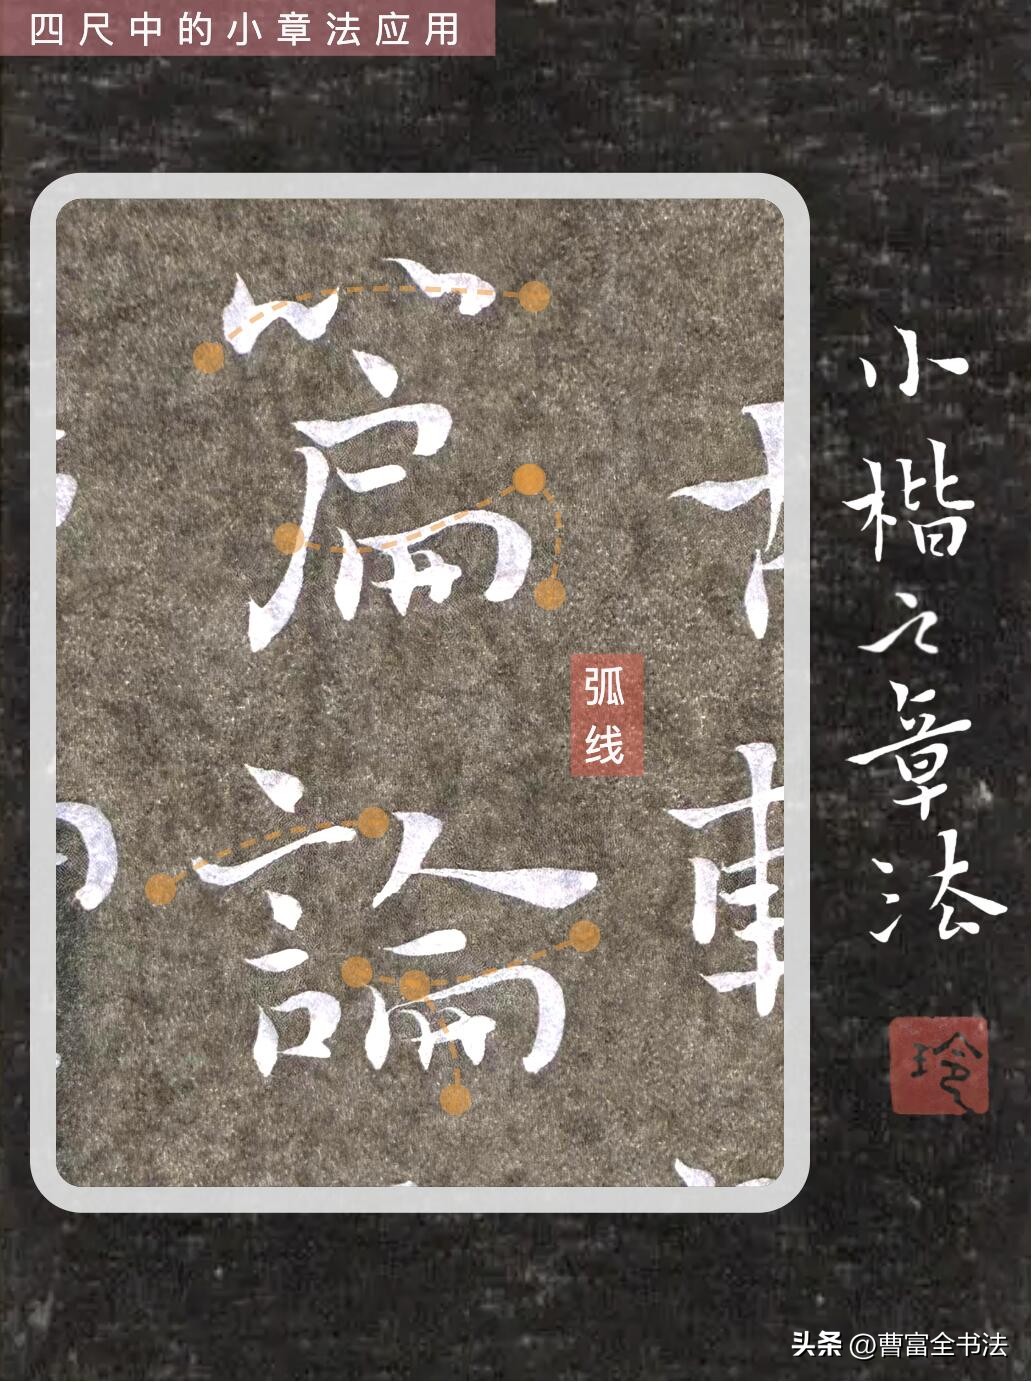 四尺中的小章法应用
小楷之章法
玲
篇論
弧线
头条 @曹富全书法